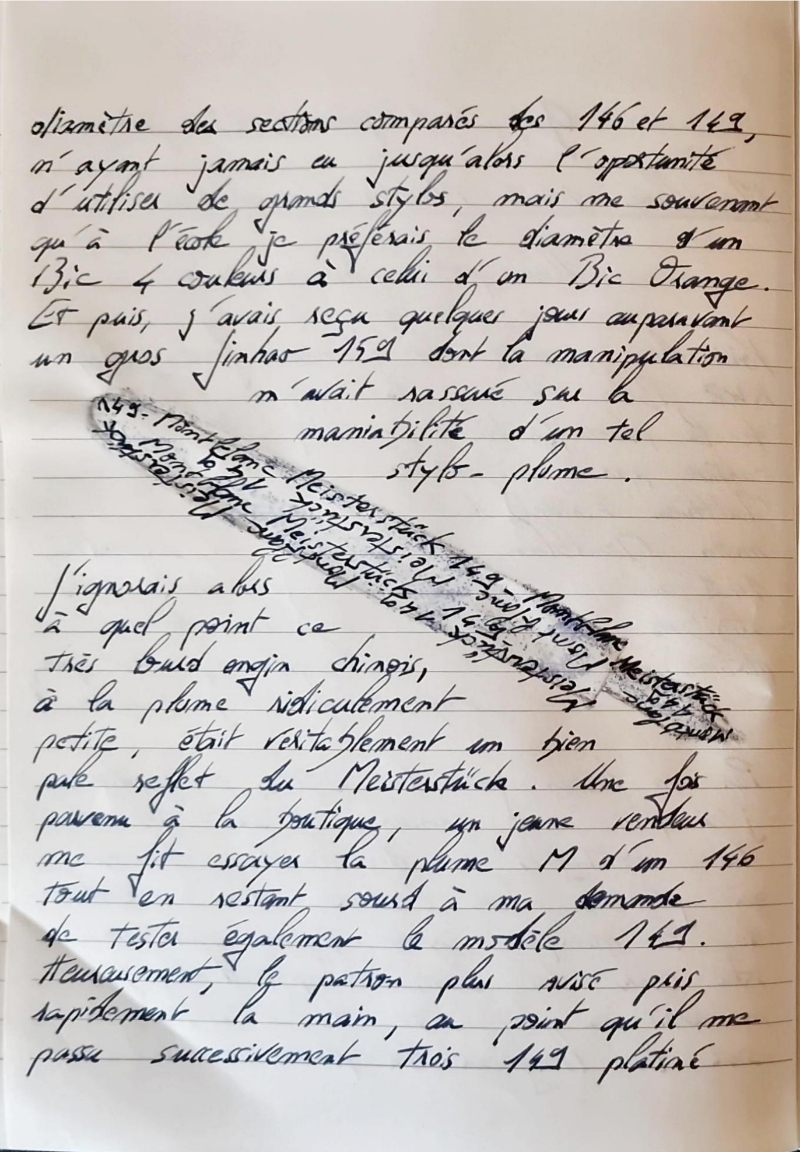 diamètre des sections comparés des 146 et 149,
n'ayant jamais eu jusqu'alors l'oportunité
d'utiliser de grands stylos, mais me souvenant
qu'à l'école je préférais le diamètre d'un
Bic 4 couleurs à celui d'un Bic Orange.
Et puis, j'avais reçu quelques jours auparavant
un gros Jinhao 159 dont la manipulation
m'avait rassuré sur la
maniabilité d'un tel
stylo-plume.
149 - Montblanc Meisterstück 149 - Montblanc Meisterstück
149 Montblanc Meisterstück 149 Montblanc Meisterstück
J'ignorais alors
à quel point ce
très lourd engin chinois,
à la plume ridiculement
petite, était veritablement un bien
pale reflet du Meisterstück. Une fois
parvenu à la boutique, un jeune vendeur
me fit essayer la plume M d'un 146
tout en restant sourd à ma demande
de tester également le modèle 149.
Heureusement, le patron plus avisé pris
rapidement la main, au point qu'il me
passa successivement trois 149 platiné